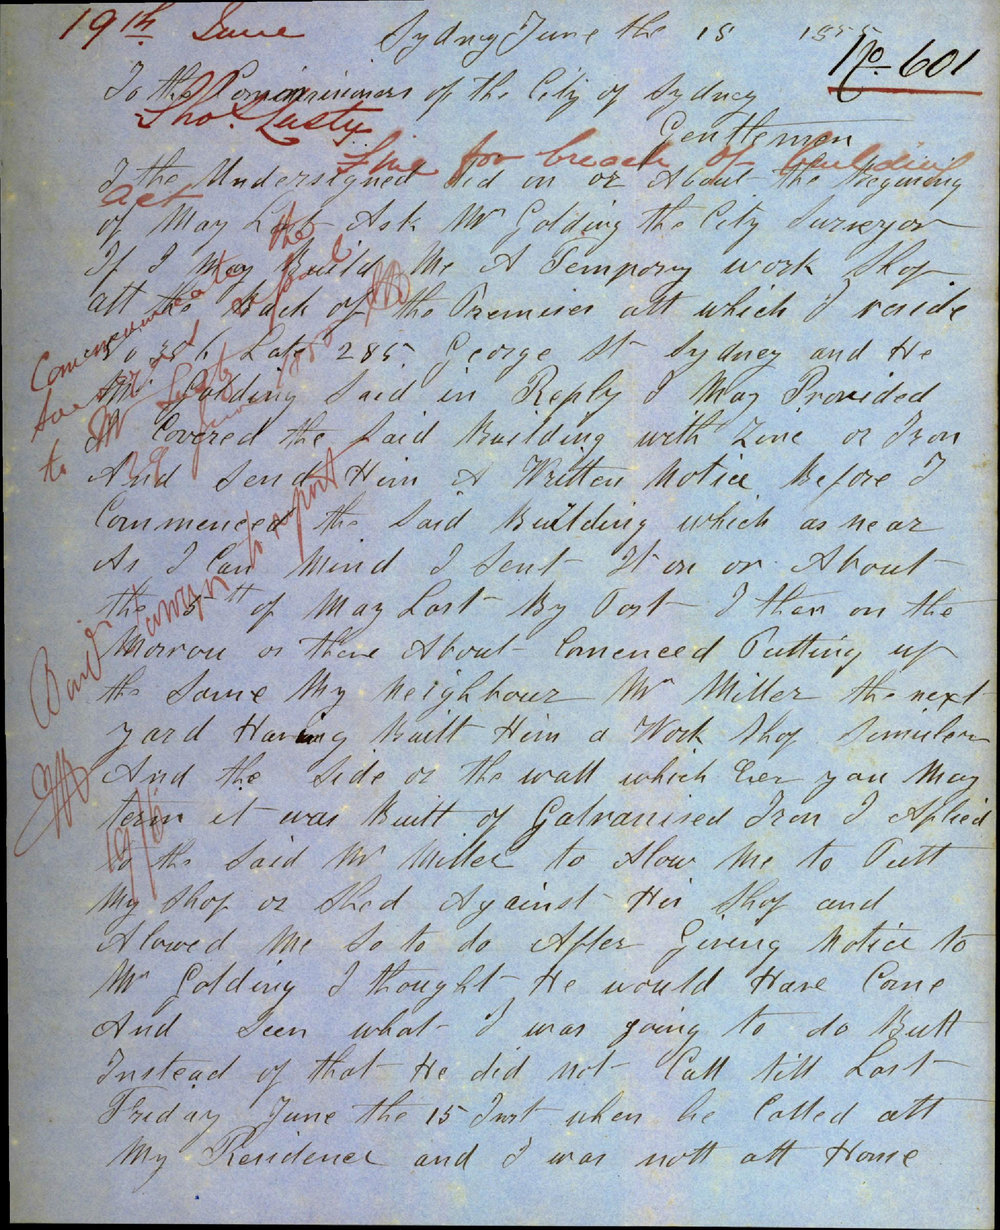 19th June
Sydney June the 18 1855
No. 601
To the Commissioners of the City of Sydney
Thos. Lusty
Gentlemen
Fine for breach of building
act
I the Undersigned did on or About the Begining
of May Last Ask Mr Golding the City Surveyor
If I May Build Me A Tempory work Shop
att the Back of the Premises att which I reside
Late 285 George St Sydney and He
Mr Golding Said in Reply I May Provided
I Covered the Said Building with Zinc or Iron
And Send Him A Written Notice Before I
Commenced the Said Building which as near
As I Can Mind I Sent It on or About
the 5th of May Last By Post I then on the
Morrow or there About Comenced Putting up
the Same My Neighbour Mr Miller the next
yard Having Built Him a Work Shop Similer
And the Side or the wall which Ever you May
term it was Built of Galvanised Iron I Aplied
to the Said Mr Miller to Alow Me to Putt
My Shop or Shed Against His Shop and
Alowed Me So to do After Giving Notice to
Mr Golding I thought He would Have Come
And Seen what I was going to do Butt
Instead of that He did not Call till Last
Friday June the 15 Inst when he Called att
My Residence and I was nott att Home
Communicate the
to Mr Lusty
to report
19/6